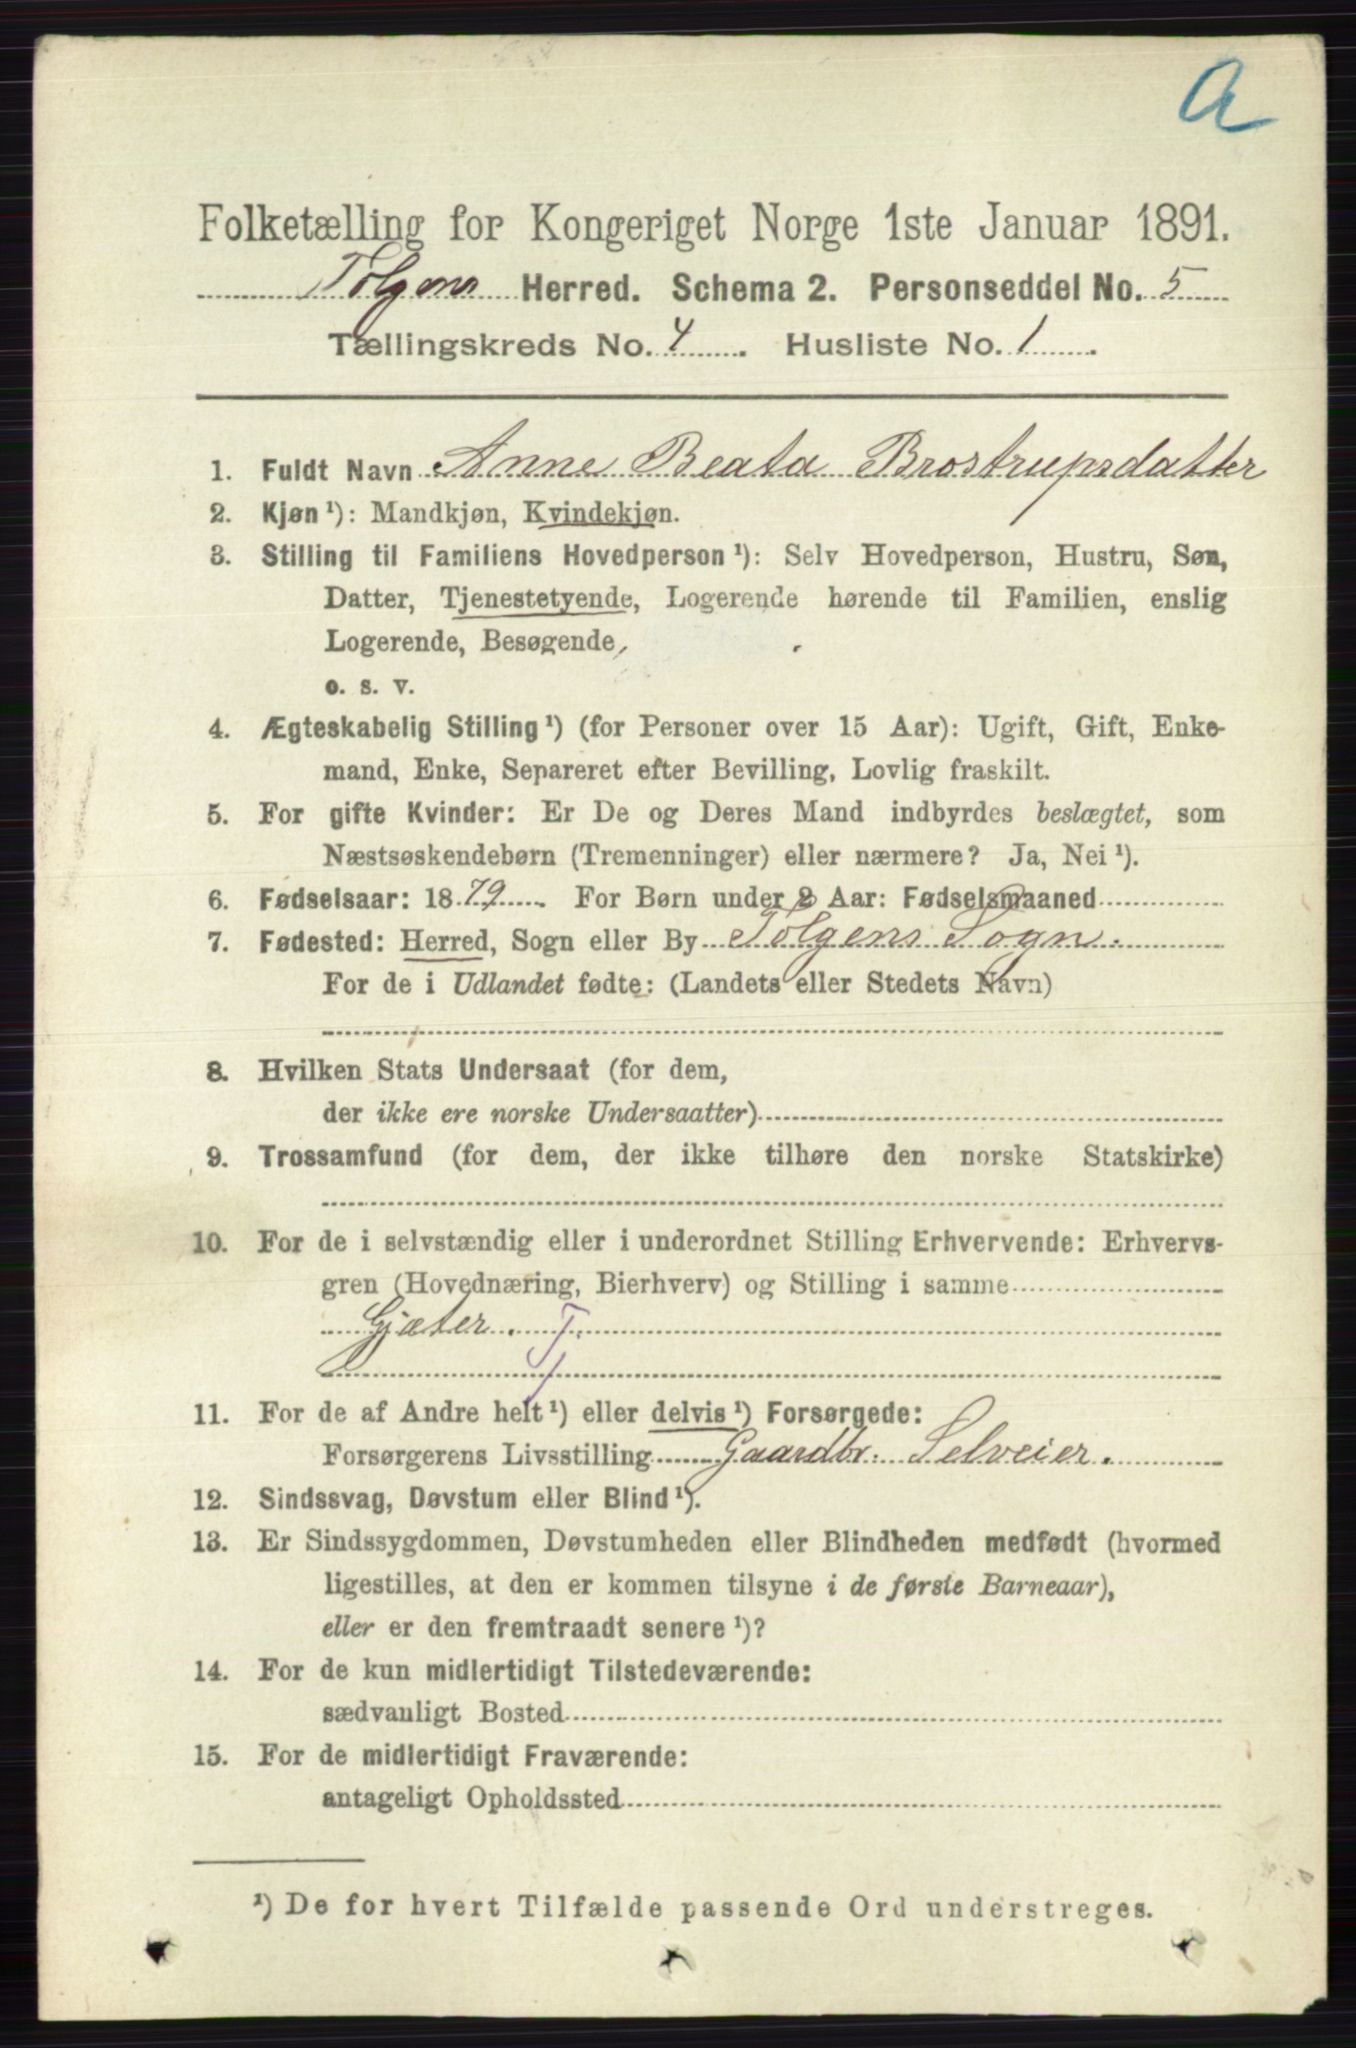 a
Folketælling for Kongeriget Norge 1ste Januar 1891.
Tolgens Herred. Schema 2. Personseddel No. 5
Tællingskreds No. 4. Husliste No. 1.
1. Fuldt Navn Anne Beata Brostrupsdatter
2. Kjøn ¹): Mandkjøn, Kvindekjøn.
3. Stilling til Familiens Hovedperson ¹): Selv Hovedperson, Hustru, Søn,
Datter, Tjenestetyende, Logerende hørende til Familien, enslig
Logerende, Besøgende,
o. s. v.
4. Ægteskabelig Stilling ¹) (for Personer over 15 Aar): Ugift, Gift, Enke-
mand, Enke, Separeret efter Bevilling, Lovlig fraskilt.
5. For gifte Kvinder: Er De og Deres Mand indbyrdes beslægtet, som
Næstsøskendebørn (Tremenninger) eller nærmere? Ja, Nei ¹).
6. Fødselsaar: 1879. For Børn under 2 Aar: Fødselsmaaned
7. Fødested: Herred, Sogn eller By Tolgens Sogn.
For de i Udlandet fødte: (Landets eller Stedets Navn)
8. Hvilken Stats Undersaat (for dem,
der ikke ere norske Undersaatter)
9. Trossamfund (for dem, der ikke tilhøre den norske Statskirke)
10. For de i selvstændig eller i underordnet Stilling Erhvervende: Erhvervs-
gren (Hovednæring, Bierhverv) og Stilling i samme
Gjæter. T
11. For de af Andre helt ¹) eller delvis ¹) Forsørgede:
Forsørgerens Livsstilling Gaardbr. Selveier.
12. Sindssvag, Døvstum eller Blind ¹).
13. Er Sindssygdommen, Døvstumheden eller Blindheden medfødt (hvormed
ligestilles, at den er kommen tilsyne i de første Barneaar),
eller er den fremtraadt senere ¹)?
14. For de kun midlertidigt Tilstedeværende:
sædvanligt Bosted
15. For de midlertidigt Fraværende:
antageligt Opholdssted
¹) De for hvert Tilfælde passende Ord understreges.